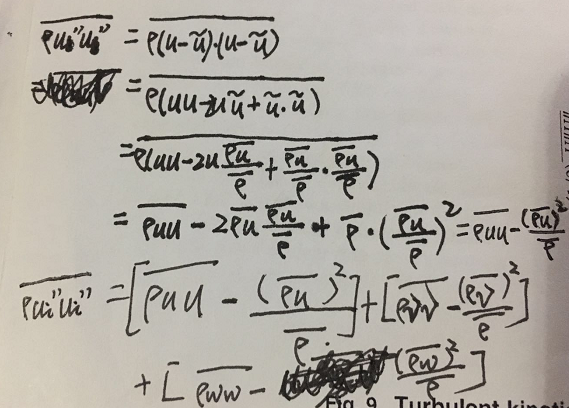 \overline{ρu"u"} = \overline{ρ(u-ũ)·(u-ũ)}
= \overline{ρ(uu-2uũ+ũ·ũ)}
= \overline{ρ(uu-2u\frac{\overline{ρu}}{\overline{ρ}}+\frac{\overline{ρu}}{\overline{ρ}}·\frac{\overline{ρu}}{\overline{ρ}})}
= \overline{ρuu} - 2\overline{ρu}\frac{\overline{ρu}}{\overline{ρ}} + \overline{ρ}·(\frac{\overline{ρu}}{\overline{ρ}})^2 = \overline{ρuu} - \frac{(\overline{ρu})^2}{\overline{ρ}}
\overline{ρu_i"u_i"} = [\overline{ρuu} - \frac{(\overline{ρu})^2}{\overline{ρ}}] + [\overline{ρvv} - \frac{(\overline{ρv})^2}{\overline{ρ}}]
+ [\overline{ρww} - \frac{(\overline{ρw})^2}{\overline{ρ}}]
Fig. 9 Turbulent kineti